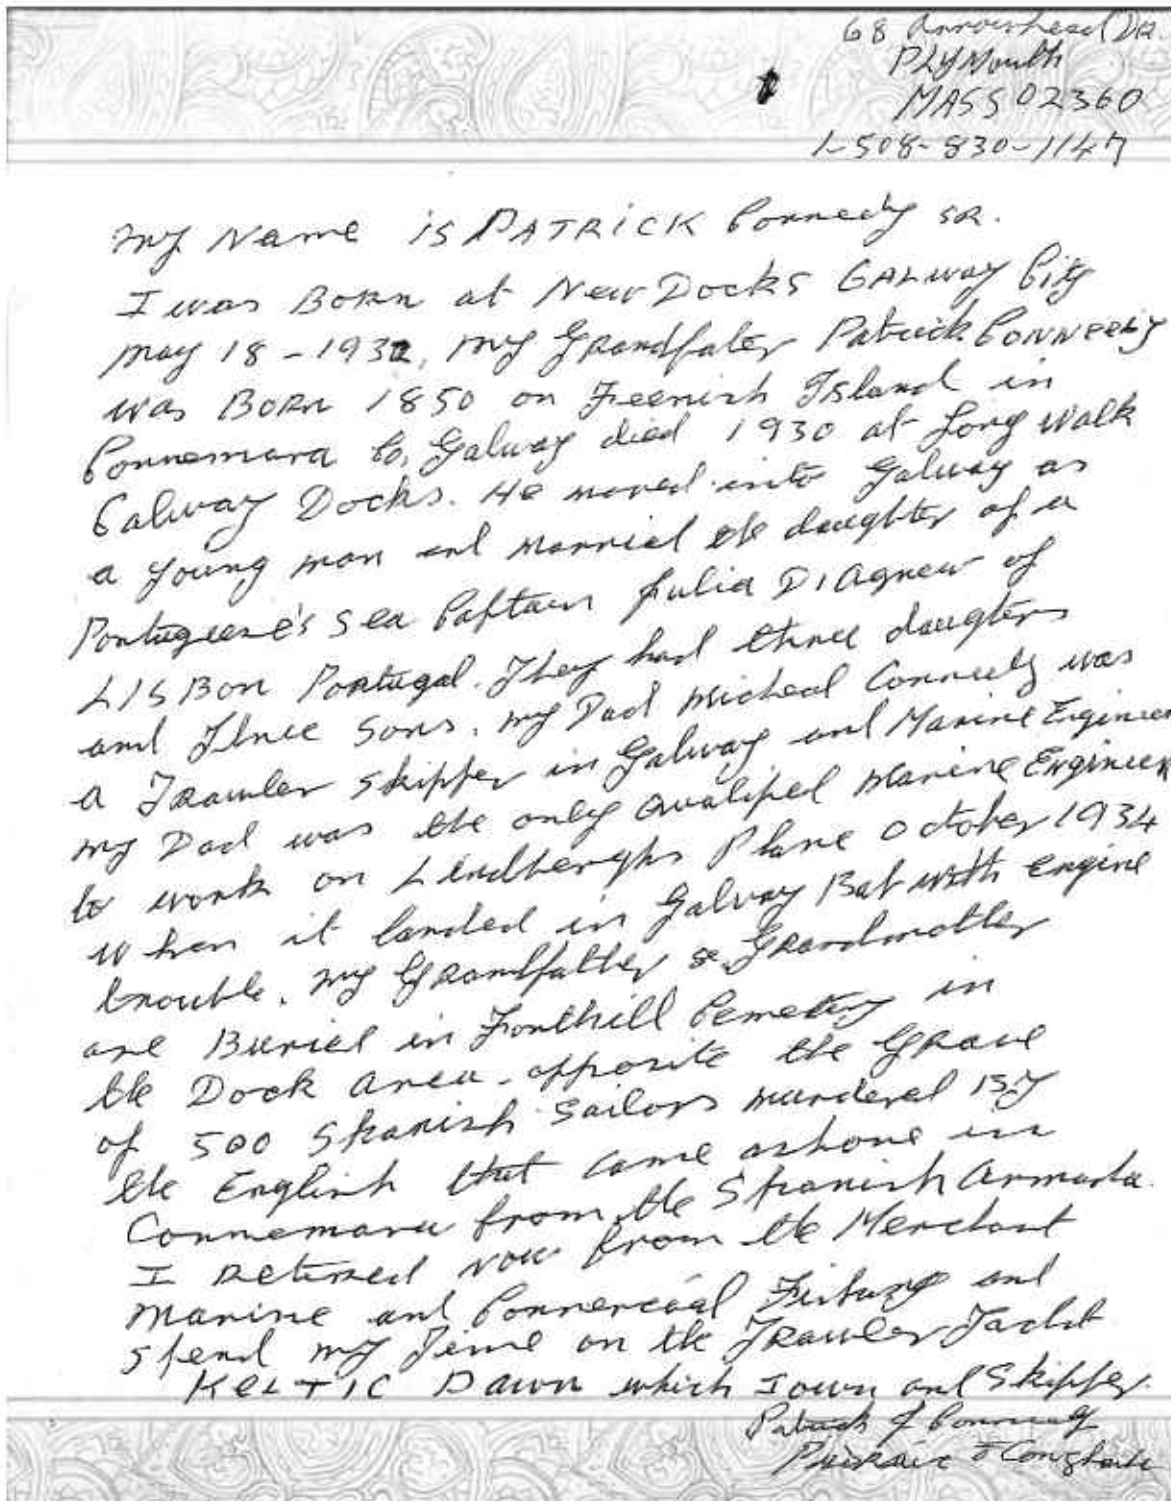 68 Arrowhead DR.
PLYMouth
MASS 02360
1-508-830-1147
My Name is PATRICK Conneely SR.
I was BORN at New Docks GALway City
May 18 - 1932, My Grandfater Patrick CONNEELY
was BORN 1850 on Feenish Island in
Connemara Co, Galway died 1930 at Long Walk
Galway Docks. He moved into Galway as
a young man and married the daughter of a
Portugeese's sea Captain Julia DiAgnew of
LISBon Portugal. They had three daugters
and Three Sons. My Dad Micheal Conneely was
a TRawler skipper in Galway and Marine Engineer
My Dad was the only Qualified Marine Engineer
to work on Lindberghs Plane October 1934
when it landed in Galway Bat with Engine
trouble. My GRandfather & GRandmother
are Buried in Forthill Cemetery in
the Dock Area - opposite the GRave
of 500 Spanish Sailors murdered BY
the English that came ashore in
Connemara from the Spanish Armada.
I Retired now from the Merchant
Marine and Commercial Fishing and
Spend my Time on the TRawler Yacht
KELTIC Dawn which I own and Skipper.
Patrick J Conneely
Padraic